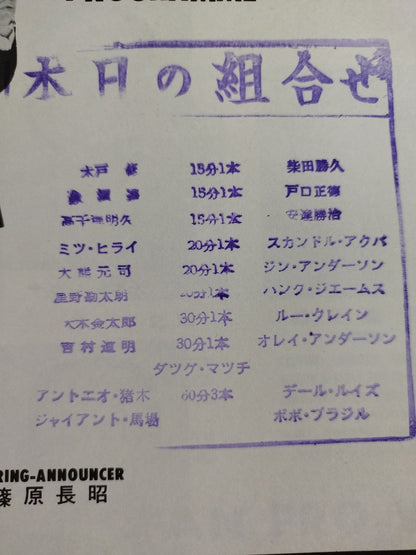 本日の組合せ
木戸 修 15分1本 柴田勝久
15分1本 戸口正徳
高千穂明久 15分1本 安達勝治
ミツ・ヒライ 20分1本 スカンドル・アクバ
大熊元司 20分1本 ジン・アンダーソン
星野勘太郎 20分1本 ハンク・ジエームス
大木金太郎 30分1本 ルー・クレイン
吉村道明 30分1本 オレイ・アンダーソン
ダツグ・マツチ
アントニオ・猪木 60分3本 デール・ルイズ
ジャイアント・馬場 ボボ・ブラジル
RING-ANNOUNCER
篠原長昭